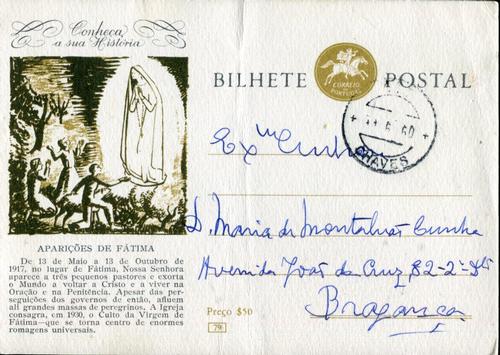 Conheça
a sua História
BILHETE POSTAL
CORREIO
PORTUGAL
CHAVES
Ex ma
D. Maria de Montalvão Cunha
Avenida João da Cruz, 82-2º
Bragança
APARIÇÕES DE FÁTIMA
De 13 de Maio a 13 de Outubro de
1917, no lugar de Fátima, Nossa Senhora
aparece a três pequenos pastores e exorta
o Mundo a voltar a Cristo e a viver na
Oração e na Penitência. Apesar das per-
seguições dos governos de então, afluem
ali grandes massas de peregrinos. A Igreja
consagra, em 1930, o Culto da Virgem de
Fátima—que se torna centro de enormes
romagens universais.
Preço $50
79